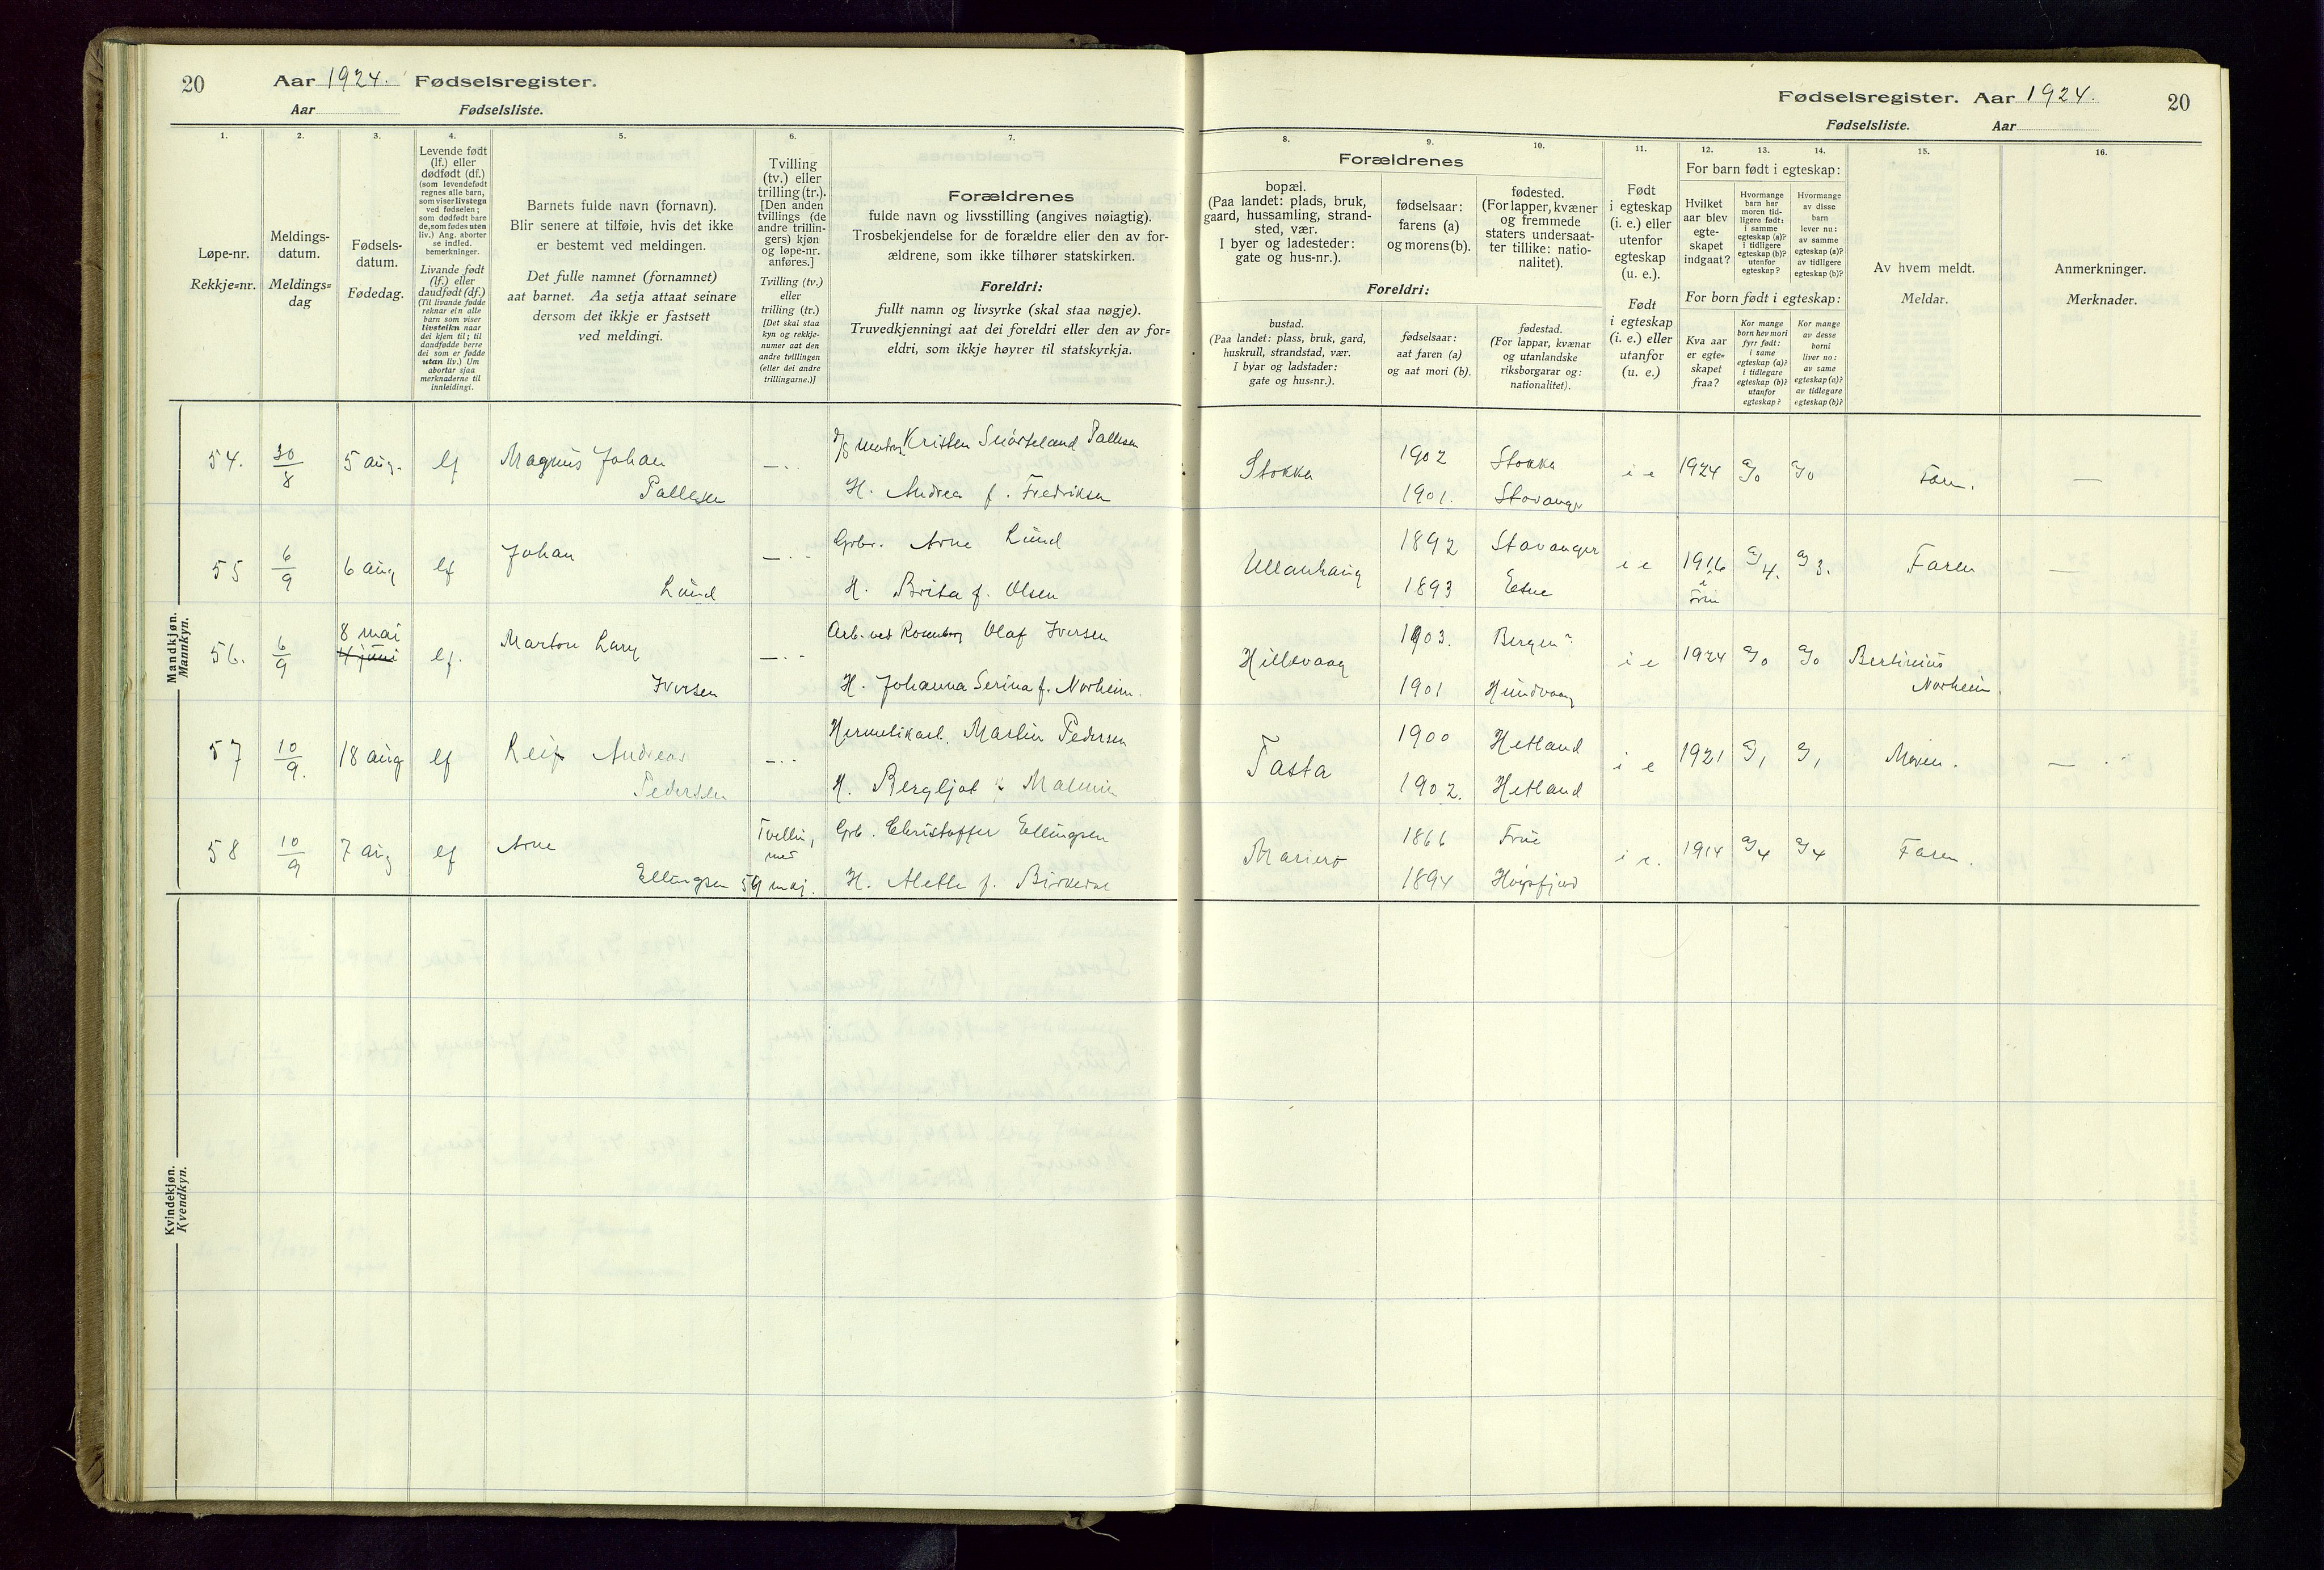 20
Aar 1924. Fødselsregister.
Aar Fødselsliste.
1.
2.
3.
4.
5.
6.
7.
Løpe-nr.
Rekkje=nr.
Meldings-
datum.
Meldings=
dag
Fødsels-
datum.
Fødedag.
Levende født
(lf.) eller
dødfødt (df.)
(som levendefødt
regnes alle barn,
som viser livstegn
ved fødselen;
som dødfødt bare
de, som fødes uten
liv.) Ang. aborter
se indled.
bemerkninger.
Livande født
(lf.) eller
daudfødt (df.)
(Til livande fødde
reknar ein alle
barn som viser
livsteikn naar
dei kjem til; til
daudfødde berre
dei som er fødde
utan liv.) Um
abortar sjaa
merknaderne til
innleidingi.
Barnets fulde navn (fornavn).
Blir senere at tilføie, hvis det ikke
er bestemt ved meldingen.
Det fulle namnet (fornamnet)
aat barnet. Aa setja attaat seinare
dersom det ikkje er fastsett
ved meldingi.
Tvilling
(tv.) eller
trilling (tr.).
[Den anden
tvillings (de
andre trillin-
gers) kjøn
og løpe-nr.
anføres.]
Tvilling (tv.)
eller
trilling (tr.)
[Det skal staa
kyn og rekkje-
numer aat den
andre tvillingen
(eller dei andre
trillingarne.)]
Forældrenes
fulde navn og livsstilling (angives nøiagtig).
Trosbekjendelse for de forældre eller den av for-
ældrene, som ikke tilhører statskirken.
Foreldri:
fullt namn og livsyrke (skal staa nøgje).
Truvedkjenningi aat dei foreldri eller den av for=
eldri, som ikkje høyrer til statskyrkja.
Mandkjøn.
Mannkyn.
54. 30/8 5 aug. lf Magnus Johan
Pallesen
Kristen Pallesen
H. Andrea f. Fredriksen
55 6/9 6 aug lf Johan
Lund
Grbr. Arne Lund
H. Brita f. Olsen
56. 6/9 8 mai
4 juni
lf. Marton
Iversen
Arb. ved Rosenberg Olaf Iversen
H. Johanna Serina f. Norheim.
57 10/9. 18 aug lf Leif Andreas
Pedersen
Hermetikarb. Martin Pedersen
H. Bergljot f. Malmin
58 10/9 7 aug lf Arne
Ellingsen
59
Grb. Christoffer Ellingsen
H. Alette f.
Kvindekjøn.
Kvendkyn.
Fødselsregister. Aar 1924.
20
Fødselsliste. Aar
8.
9.
10.
11.
12.
13.
14.
15.
16.
Forældrenes
bopæl.
(Paa landet: plads, bruk,
gaard, hussamling, strand-
sted, vær.
I byer og ladesteder:
gate og hus-nr.).
fødselsaar:
farens (a)
og morens (b).
fødested.
(For lapper, kvæner
og fremmede
staters undersaat-
ter tillike: natio-
nalitet).
Foreldri:
bustad.
(Paa landet: plass, bruk, gard,
huskrull, strandstad, vær.
I byar og ladstader:
gate og hus=nr.).
fødselsaar:
aat faren (a)
og aat mori (b).
fødestad.
(For lappar, kvænar
og utanlandske
riksborgarar og:
nationalitet).
Født
i egteskap
(i. e.) eller
utenfor
egteskap
(u. e.).
Født
i egteskap
(i. e.) eller
utanfor
(u. e.)
For barn født i egteskap:
Hvilket
aar blev
egte-
skapet
indgaat?
Hvormange
barn har
moren tid-
ligere født:
i samme
egteskap (a)?
i tidligere
egteskap (b)?
utenfor
egteskap?
Hvormange
av disse
barn
lever nu:
av samme
egteskap (a)?
av tidligere
egteskap (b)?
For born født i egteskap:
Kva aar
er egte=
skapet
fraa?
Kor mange
born hev mori
fyrr født:
i same
egteskap (a)?
i tidlegare
egteskap (b)?
utanfor
egteskap?
Kor mange
av desse
borni
liver no:
av same
egteskap (a)?
av tidlegare
egteskap (b)?
Av hvem meldt.
Meldar.
Anmerkninger.
Merknader.
Stokka 1902 Stokka i e 1924 a/0 a/0 Faren. —
1901. Stavanger
Ullanhaug 1892 Stavanger i e 1916 a/4. a/3. Faren —
1893 Etne
Hillevaag 1903. Bergen i e 1924 a/0 a/0 Bertinius
Norheim.
1901 Hundvaag
Tasta 1900 Hetland i e 1921 a/1 a/1 Moren. —
1902. Hetland
Mariero 1866 Frue i e. 1914 a/4 a/4 Faren.
1894 Høgsfjord